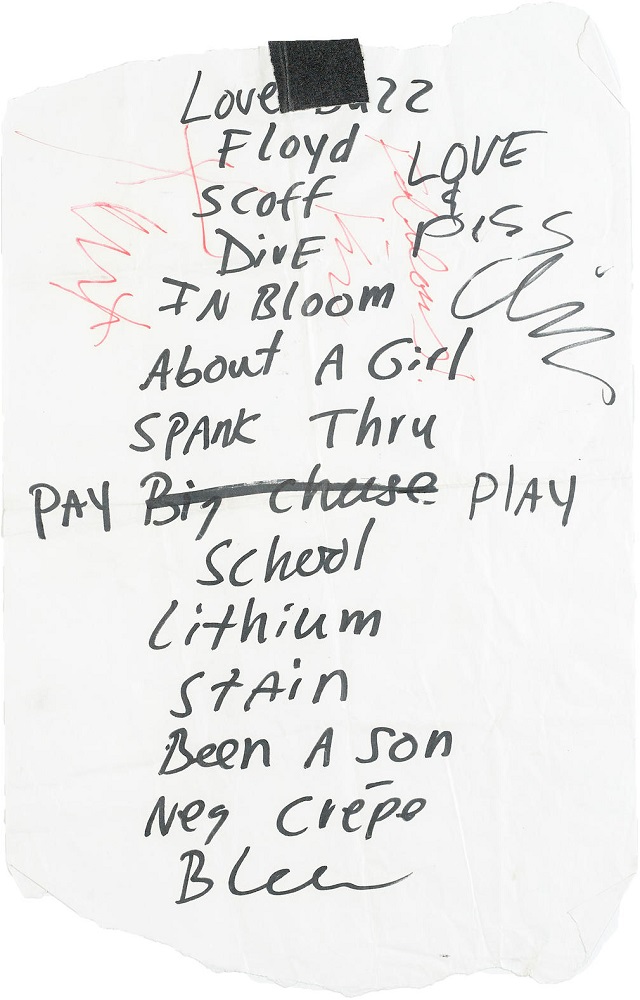 Love Buzz
Floyd
LOVE
&
Piss
Scoff
DivE
IN Bloom
About A Girl
SPANK Thru
PAY Big Cheese PlAY
School
Lithium
StAin
Been A Son
Neg Crēpe
Blew